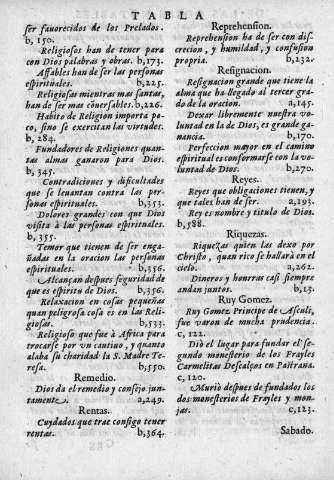 TABLA
ser fauorecidos de los Prelados.
b, 150.
Religiosos han de tener para
con Dios palabras y obras. b,173.
Affables han de ser las personas
espirituales. b,225.
Religiosas mientras mas santas,
han de ser mas cõuersables. b,226.
Habito de Religion importa po-
co, sino se exercitan las virtudes.
b, 284.
Fundadores de Religiones quan-
tas almas ganaron para Dios.
b, 345.
Contradiciones y dificultades
que se leuantan contra las per-
sonas espirituales. b,353.
Dolores grandes con que Dios
visita à las personas espirituales.
b, 355.
Temor que tienen de ser enga-
ñadas en la oracion las personas
espirituales. b,356.
Alcançan despues seguridad de
que es espiritu de Dios. b,356.
Relaxacion en cosas pequeñas
quan peligrosa cosa es en las Reli-
giosas. b,533.
Religioso que fue à Africa para
trocarse por vn cautiuo, y quanto
alaba su charidad la S. Madre Te-
resa. b,550.
Remedio.
Dios da el remedio y consejo jun-
tamente. a,249.
Rentas.
Cuydados que trae consigo tener
rentas. b,364.
Reprehension.
Reprehension ha de ser con dis-
crecion, y humildad, y confusion
propria. b,232.
Resignacion.
Resignacion grande que tiene la
alma que ha llegado al tercer gra-
do de la oracion. a,145.
Dexar libremente nuestra vo-
luntad en la de Dios, es grande ga-
nancia. b,170.
Perfeccion mayor en el camino
espiritual es conformarse con la vo-
luntad de Dios. b,270.
Reyes.
Reyes que obligaciones tienen, y
que tales han de ser. a,193.
Rey es nombre y titulo de Dios.
b,588.
Riquezas.
Riquezas quien las dexo por
Christo, quan rico se hallarà en el
cielo. a,262.
Dineros y honrras casi siempre
andan juntos. b,13.
Ruy Gomez.
Ruy Gomez Principe de Asculi,
fue varon de mucha prudencia.
c, 122.
Diò el lugar para fundar el se-
gundo monesterio de los Frayles
Carmelitas Descalços en Pastrana.
c, 120.
Muriò despues de fundados los
dos monesterios de Frayles y mon-
jas. c,123.
Sabado.